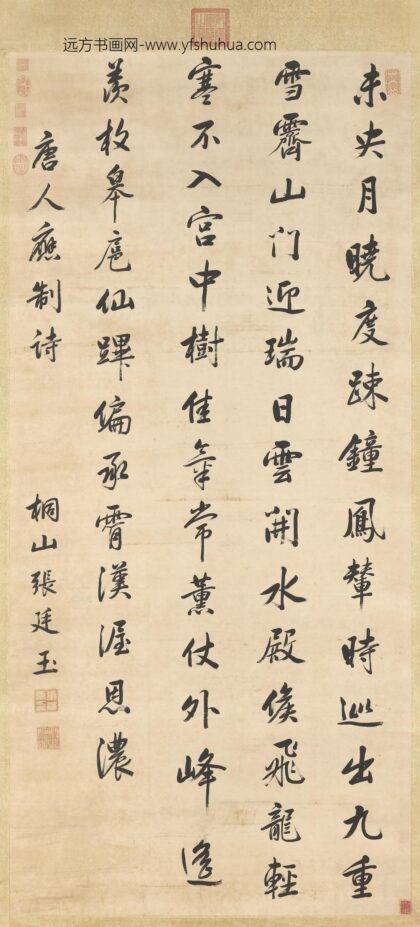 远方书画网-www.yfshuhua.com
未央月曉度踈鐘鳳輦時巡出九重
雪霽山門迎瑞日雲開水殿候飛龍輕
寒不入宮中樹佳氣常薰仗外峰遙
羨枚皋扈仙蹕偏承霄漢渥恩濃
唐人應制詩
桐山張廷玉